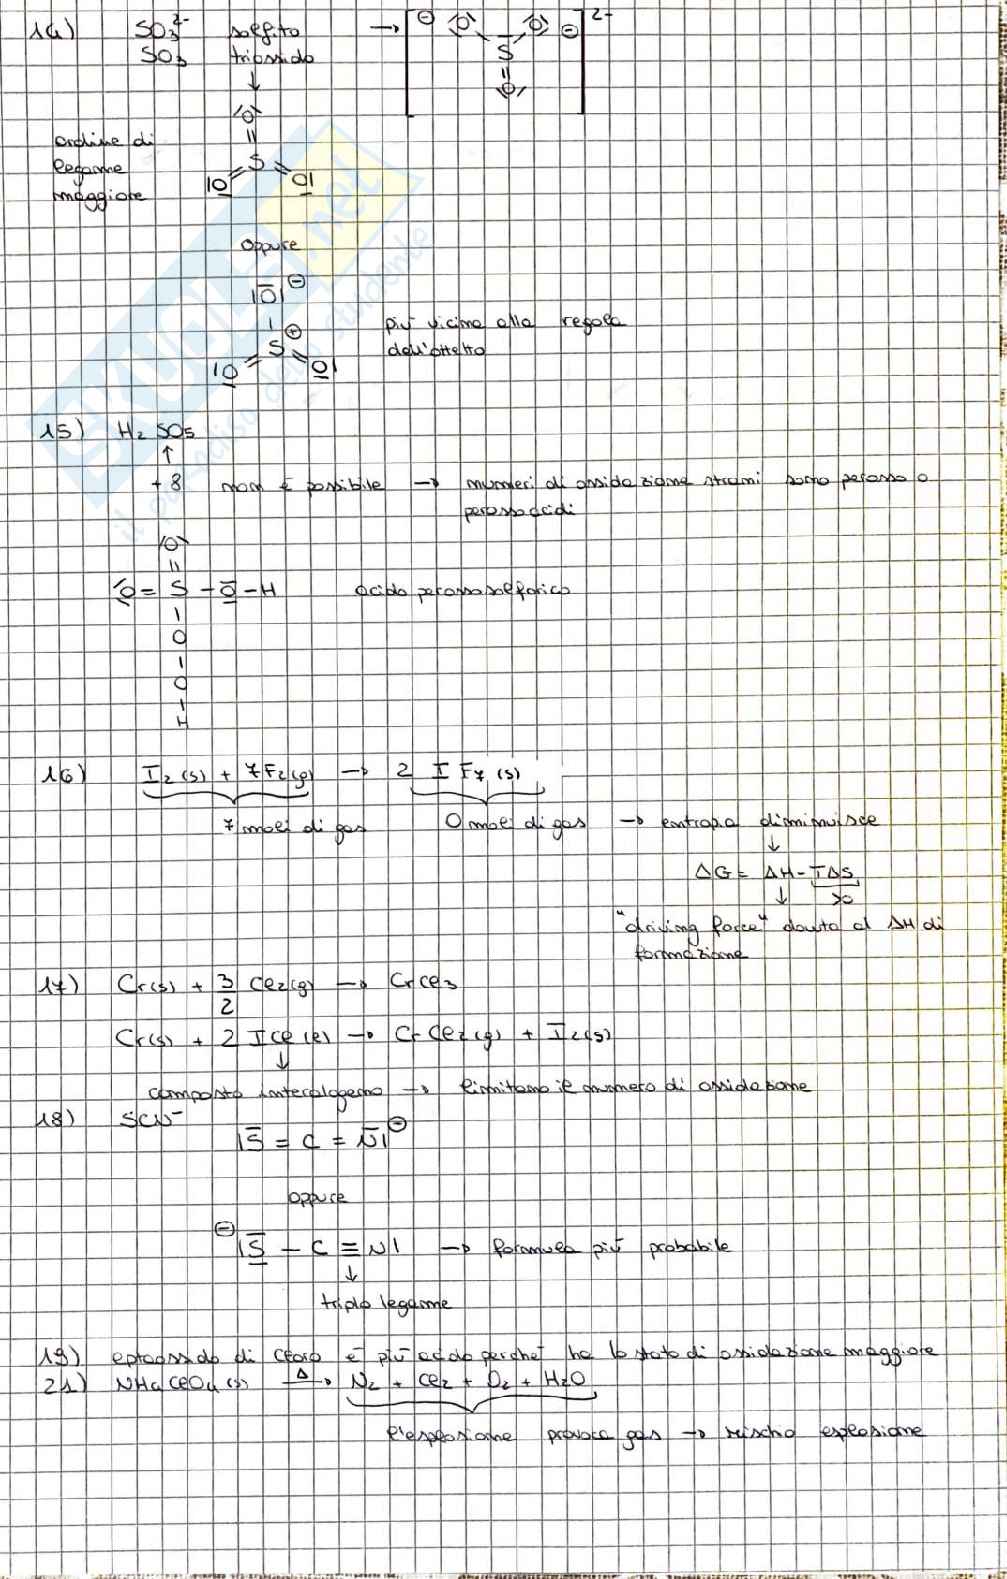 14) SO₃²⁻ solfito → [⊖ |O| |O| ⊖]²⁻
SO₃ triossido S
↓ ||
|O| |O|
||
ordine di
legame S
maggiore |O O|
oppure
|O| ⊖
| ⊕ più vicina alla regola
S dell'ottetto
|O O|
15) H₂SO₅
↑
+8 non è possibile → numeri di ossidazione strani sono perosso o
perossoacidi
|O|
||
O = S - O - H acido perossosolforico
|
O
|
O
|
H
16) I₂(s) + 7F₂(g) → 2 IF₇(s)
7 moli di gas 0 moli di gas → entropia diminuisce
↓
ΔG = ΔH - TΔS
↓ >0
"driving force" dovuta al ΔH di
formazione
17) Cr(s) + 3/2 Cl₂(g) → CrCl₃
Cr(s) + 2 ICl(l) → CrCl₂(g) + I₂(s)
↓
composto interalogeno → limitano il numero di ossidazione
18) SCN⁻
|S = C = N| ⊖
oppure
⊖ |S - C ≡ N| → formula più probabile
↓
triplo legame
19) eptaossido di cloro è più acido perché ha lo stato di ossidazione maggiore
21) NH₄ClO₄(s) Δ→ N₂ + Cl₂ + O₂ + H₂O
l'esplosione provoca gas → rischio esplosione
SKUOLA.net
il paradiso dello studente